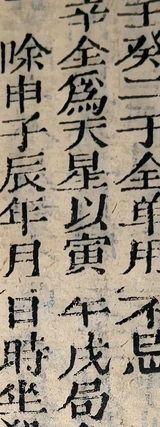 壬癸二干全单用 不忌
辛全為天星以寅 午戌局
除申子辰年月 日時坐